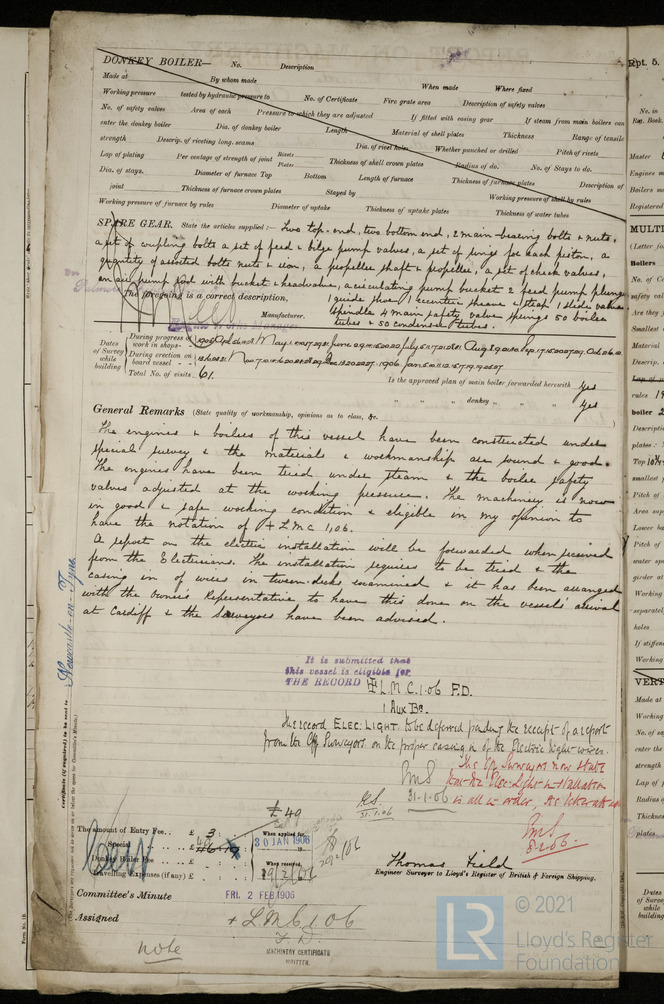 DONKEY BOILER— No. Description
Made at By whom made When made Where fixed
Working pressure tested by hydraulic pressure to No. of Certificate Fire grate area Description of safety valves
No. of safety valves Area of each Pressure to which they are adjusted If fitted with easing gear If steam from main boilers can
enter the donkey boiler Dia. of donkey boiler Length Material of shell plates Thickness Range of tensile
strength Descrip. of riveting long. seams Dia. of rivet holes Whether punched or drilled Pitch of rivets
Lap of plating Per centage of strength of joint Rivets Plates Thickness of shell crown plates Radius of do. No. of Stays to do.
Dia. of stays. Diameter of furnace Top Bottom Length of furnace Thickness of furnace plates Description of
joint Thickness of furnace crown plates Stayed by Working pressure of shell by rules
Working pressure of furnace by rules Diameter of uptake Thickness of uptake plates Thickness of water tubes
SPARE GEAR. State the articles supplied:— Two top end, two bottom end, 2 main bearing bolts & nuts,
a set of coupling bolts a set of feed & bilge pump valves, a set of rings for each piston, a
quantity of assorted bolts nuts & iron, a propeller shaft & propeller, a set of check valves,
an air pump rod with bucket & headvalve, a circulating pump bucket 2 feed pump plungers
1 guide shoe 1 eccentric sheave & strap 1 slide valve
The foregoing is a correct description,
Manufacturer. spindle 4 main safety valve springs 50 boiler
tubes & 50 condenser tubes.
Dates of Survey while building
During progress of work in shops - -
During erection on board vessel - - -
Total No. of visits 61.
Is the approved plan of main boiler forwarded herewith yes
" " " donkey " " " yes
General Remarks (State quality of workmanship, opinions as to class, &c.
The engines & boilers of this vessel have been constructed under
special survey & the materials & workmanship are sound & good.
The engines have been tried under steam & the boiler safety
valves adjusted at the working pressure. The machinery is now
in good & safe working condition & eligible in my opinion to
have the notation of + LMC 1,06.
A report on the electric installation will be forwarded when received
from the Electricians. The installation requires to be tried & the
casing in of wires in tween decks examined & it has been arranged
with the Owners Representative to have this done on the vessels arrival
at Cardiff & the Surveyors have been advised.
Newcastle-on-Tyne.
It is submitted that
this vessel is eligible for
THE RECORD + L M C. 1.06 F.D.
1 Aux Br.
The record ELEC. LIGHT to be deferred pending the receipt of a report
from the Cff Surveyors on the proper casing in of the Electric light wires.
The Cff Surveyors now state
that the Elec. Light installation
31.1.06 is all in order,
31.1.06
£ 49
The amount of Entry Fee . . £ 3 : When applied for,
Special . . £ 30 JAN 1906
Donkey Boiler Fee . . £ When received,
Travelling Expenses (if any) £
Thomas Field
Engineer Surveyor to Lloyd's Register of British & Foreign Shipping.
Committee's Minute FRI. 2 FEB 1906
Assigned + LMC 1.06
F.D.
note
MACHINERY CERTIFICATE
WRITTEN.
Rpt. 5.
No. in
Reg. Book.
Master
Engines m
Boilers m
Registered
MULTI
(Letter for
Boilers
No. of Ce
safety val
Are they
Smallest
Material
Descrip.
Lap of p
rules
boiler 2
Descripti
plates:
Top
smallest
Pitch of
Area sup
Lower ba
Pitch of
water spa
girder at
Working
separatel
holes
If stiffen
Working
VERT
Made at
Working
No. of saf
enter the
strength
Lap of p
Radius o
Thicknes
plates
Dates
of Surve
while
building
© 2021
LR Lloyd's Register
Foundation